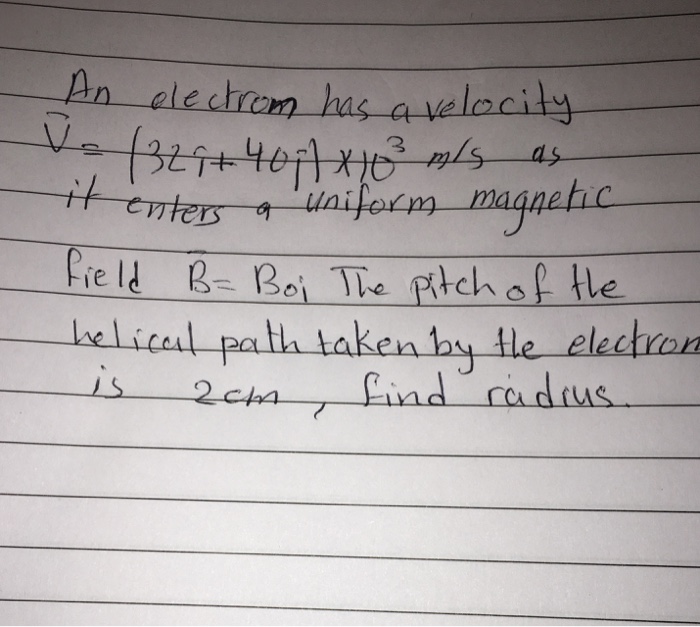 An electrom has a velocity
V⃗ = (32i + 40j) x10³ m/s as
it enters a uniform magnetic
field B̄ = Boi The pitch of the
helical path taken by the electron
is 2cm, find radius.